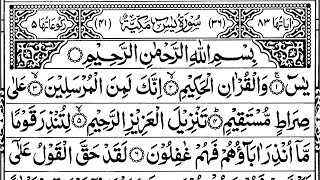 اٰیَاتُهَا ٨٣ (٣٦) سُوْرَةُ یٰسٓ مَكِّیَّةٌ (٤١) رُكُوْعَاتُهَا ٥
بِسْمِ اللّٰهِ الرَّحْمٰنِ الرَّحِیْمِ
یٰسٓ ۚ وَالْقُرْاٰنِ الْحَكِیْمِ ۙ اِنَّكَ لَمِنَ الْمُرْسَلِیْنَ ۙ عَلٰی
صِرَاطٍ مُّسْتَقِیْمٍ ؕ تَنْزِیْلَ الْعَزِیْزِ الرَّحِیْمِ ۙ لِتُنْذِرَ قَوْمًا
مَّاۤ اُنْذِرَ اٰبَآؤُهُمْ فَهُمْ غٰفِلُوْنَ ٦ لَقَدْ حَقَّ الْقَوْلُ عَلٰۤی